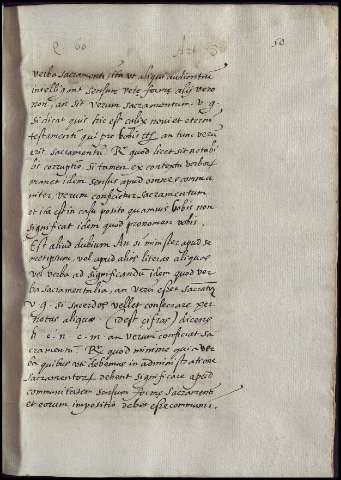 Q 60 Art 3 50
verba sacramenti ita ut aliqui audientiu
intelligant sensum vere formę alij vero
non, an sit verum sacramentum. v. g.
si dicat quis hic est calix noui et eterni
testamenti qui pro bobis etc. an tunc verũ
erit sacramentũ. R. quod licet sit notabi
lis corruptio si tamen ex contextu verborũ
maneat idem sensus apud omnes commu
niter, verum conficitur sacramentum
et ita est in casu posito quamuis bobis non
significat idem quod pronomen vobis.
Est aliud dubium An si minister apud se
metipsum, vel apud alios literas aliquas
vel verba ad significandũ idem quod ver
ba sacramentalia, an verũ esset sacramtũ
v. g. si sacerdos vellet consecrare per
notas aliquas (idest cifras) dicens
h. e. n. c. m. an verum conficiat sa
cramentũ. R. quod minime quia ver
ba quibus uti debemus in administratione
sacramentorũ debent significare apud
communitatem sensum formę sacramenti
et eorum impositio debet esse communis.